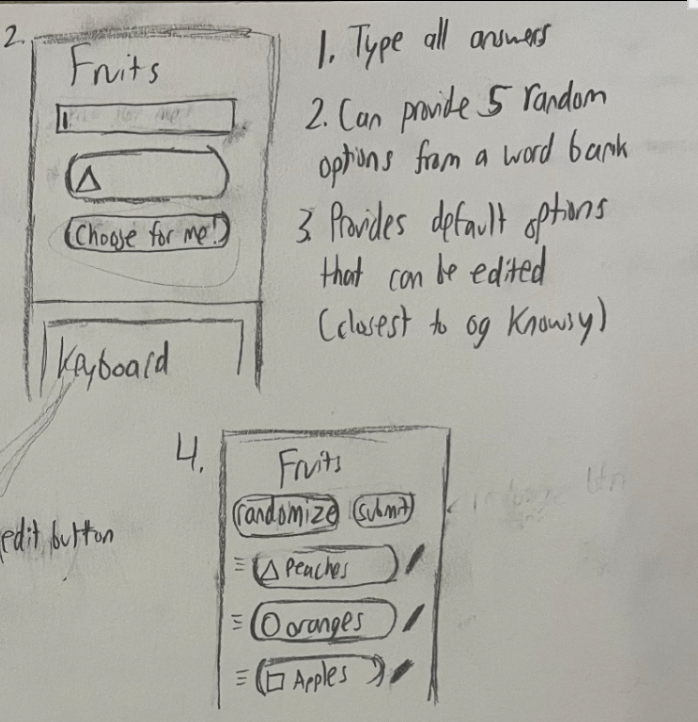 2.
Fruits
Choose for me!
Keyboard
1. Type all answers
2. Can provide 5 random
options from a word bank
3. Provides default options
that can be edited
(closest to og Knowsy)
edit button
4.
Fruits
randomize submit
Peaches
oranges
Apples